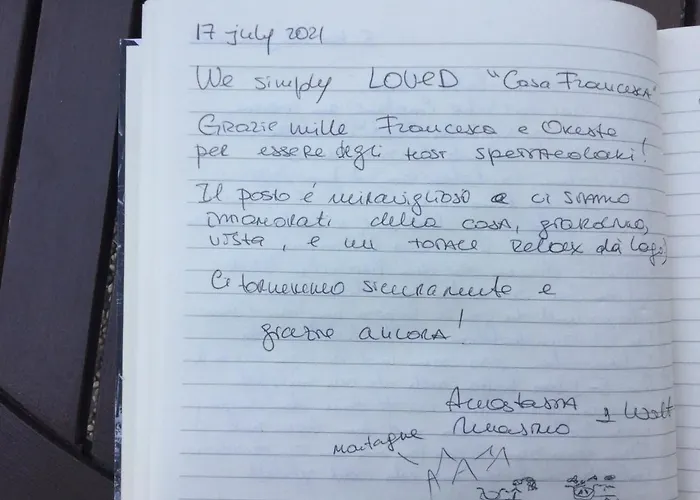 17 july 2021
We simply LOVED "Casa Francesca"
Grazie mille Francesca e Oreste
per essere degli host spettacolari!
Il posto è meraviglioso e ci siamo
innamorati della casa, giardino,
vista, e un totale relax da
Ci torneremo sicuramente e
grazie ancora!
Anastasia
Montagne